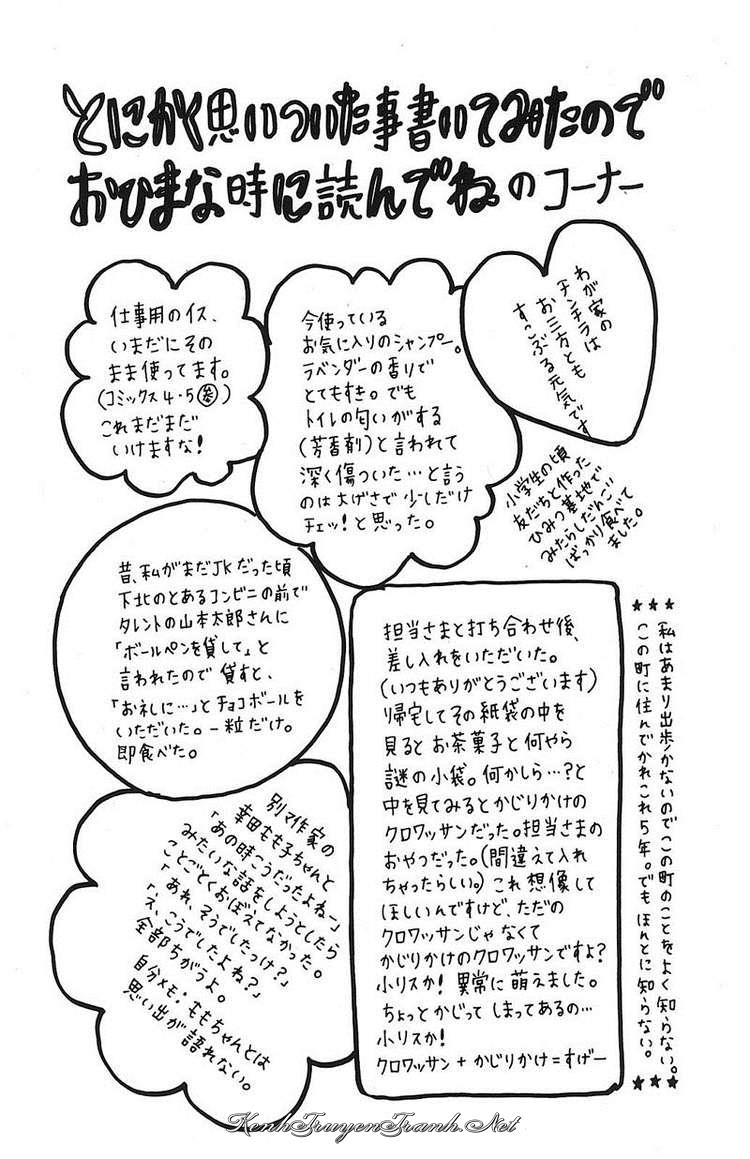 とにかく思いついた事書いてみたので
おひまな時に読んでね。のコーナー
仕事用のイス、
いまだにその
まま使ってます。
(コミックス4・5参)
これまだまだ
いけますな!
今使っている
お気に入りのシャンプー。
ラベンダーの香りで
とてもすき。でも
トイレの匂いがする
(芳香剤)と言われて
深く傷ついた…と言う
のは大げさで少しだけ
チェッ!と思った。
わが家の
チンチラは
お三方とも
すこぶる元気です
小学生の頃
友だちと作った
ひみつ基地で
みたらしだんご
ばっかり食べて
ました。
昔、私がまだJKだった頃
下北のとあるコンビニの前で
タレントの山本太郎さんに
「ボールペンを貸して」と
言われたので貸すと、
「お礼に…」とチョコボールを
いただいた。一粒だけ。
即食べた。
担当さまと打ち合わせ後、
差し入れをいただいた。
(いつもありがとうございます)
帰宅してその紙袋の中を
見るとお茶菓子と何やら
謎の小袋。何かしら…?と
中を見てみるとかじりかけの
クロワッサンだった。担当さまの
おやつだった。(間違えて入れ
ちゃったらしい。)これ想像して
ほしいんですけど、ただの
クロワッサンじゃなくて
かじりかけのクロワッサンですよ?
小リスか!異常に萌えました。
ちょっとかじってしまってあるの…
小リスか!
クロワッサン+かじりかけ=すげー
★★★私はあまり出歩かないのでこの町のことをよく知らない。★★★
この町に住んでかれこれ5年。でもほんとに知らない。
別マ作家の
幸田もも子ちゃんと
「あの時こうだったよねー」
みたいな話をしようとしたら
ことごとくおぼえてなかった。
「あれ、そうでしたっけ?」
「え、こうでしたよね?」
全部ちがうよ。
自分メモ・ももちゃんとは
思い出が語れない。
KenhTruyenTranh.Net